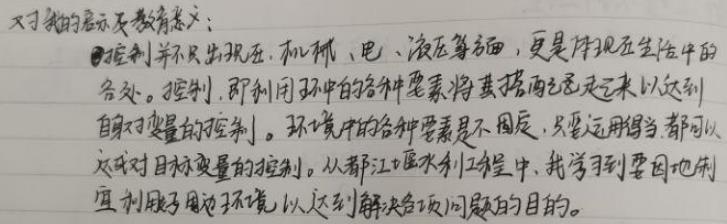 对我的启示及教育意义：
控制并不只出现在.机械、电、液压等方面，更是体现在生活中的
各处。控制，即利用环中的各种要素将其搭配起来以达到
自身对变量的控制。环境中的各种要素是不固定，只要运用得当.都可以
达成对目标变量的控制。从都江堰水利工程中，我学习到要因地制
宜利用好周边环境以达到解决各项问题的目的。